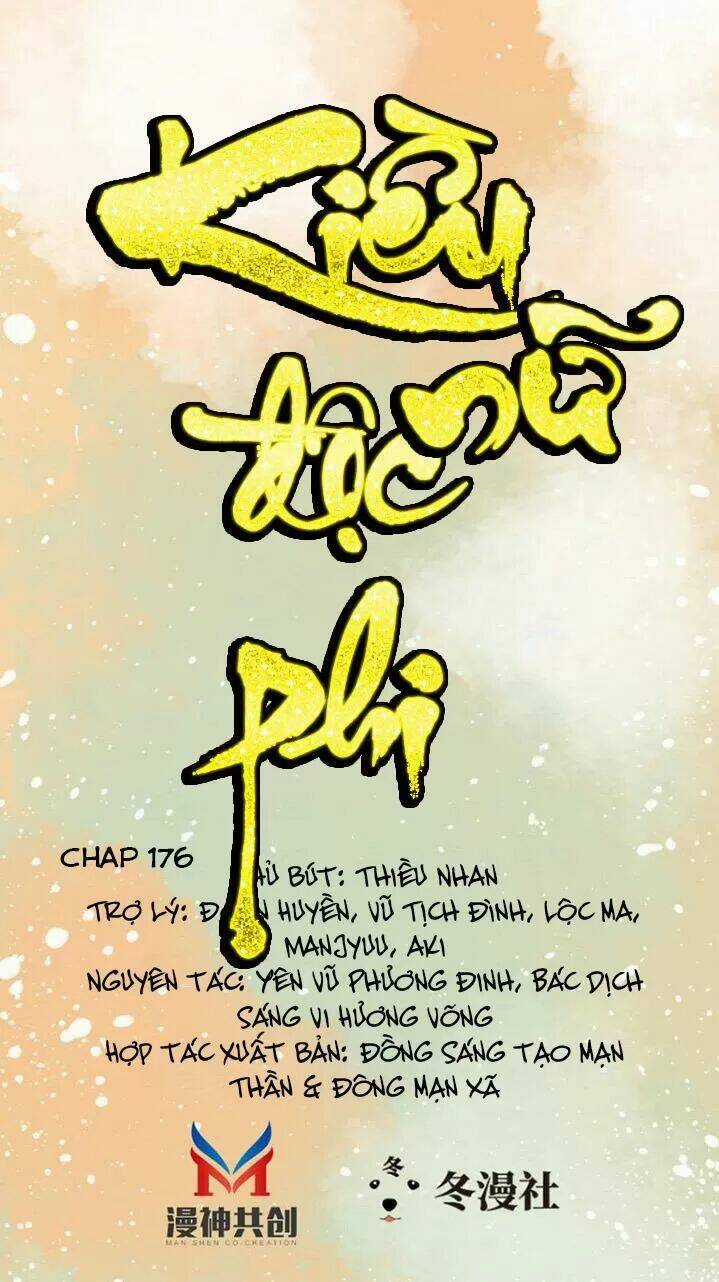 Kiều
nữ
độc
phi
CHAP 176
ỦỦ BÚT: THIỀU NHAN
TRỢ LÝ: HUYỀN, VŨ TỊCH ĐÌNH, LỘC MA,
MANJYUU, AKI
NGUYÊN TÁC: YÊN VŨ PHƯƠNG ĐINH, BẮC DỊCH
SÁNG VI HƯƠNG VÕNG
HỢP TÁC XUẤT BẢN: ĐỒNG SÁNG TẠO MẠN
THẦN & ĐÔNG MẠN XÃ
冬
漫神共创
MAN SHEN CO-CREATION
冬漫社